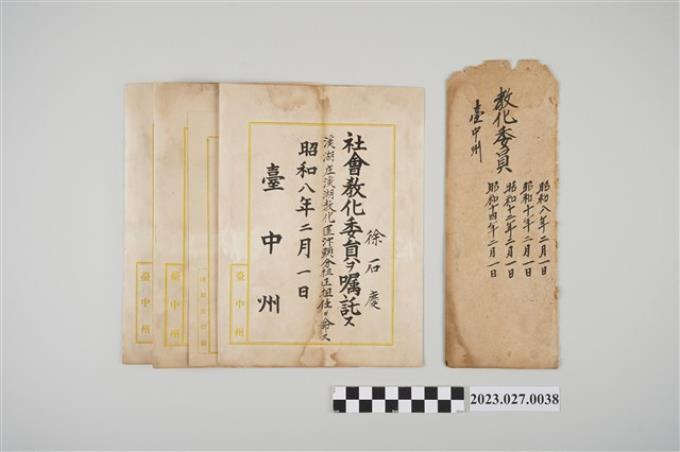 徐石慶
社會教化委員ヲ囑託ス
溪湖庄溪湖教化區汴頭分區正担任ヲ命ス
昭和八年二月一日
臺中州
臺中州
臺中州
臺中州
教化委員
臺中州
昭和八年二月一日
昭和十年二月一日
昭和十二年二月一日
昭和十四年二月一日
2023.027.0038